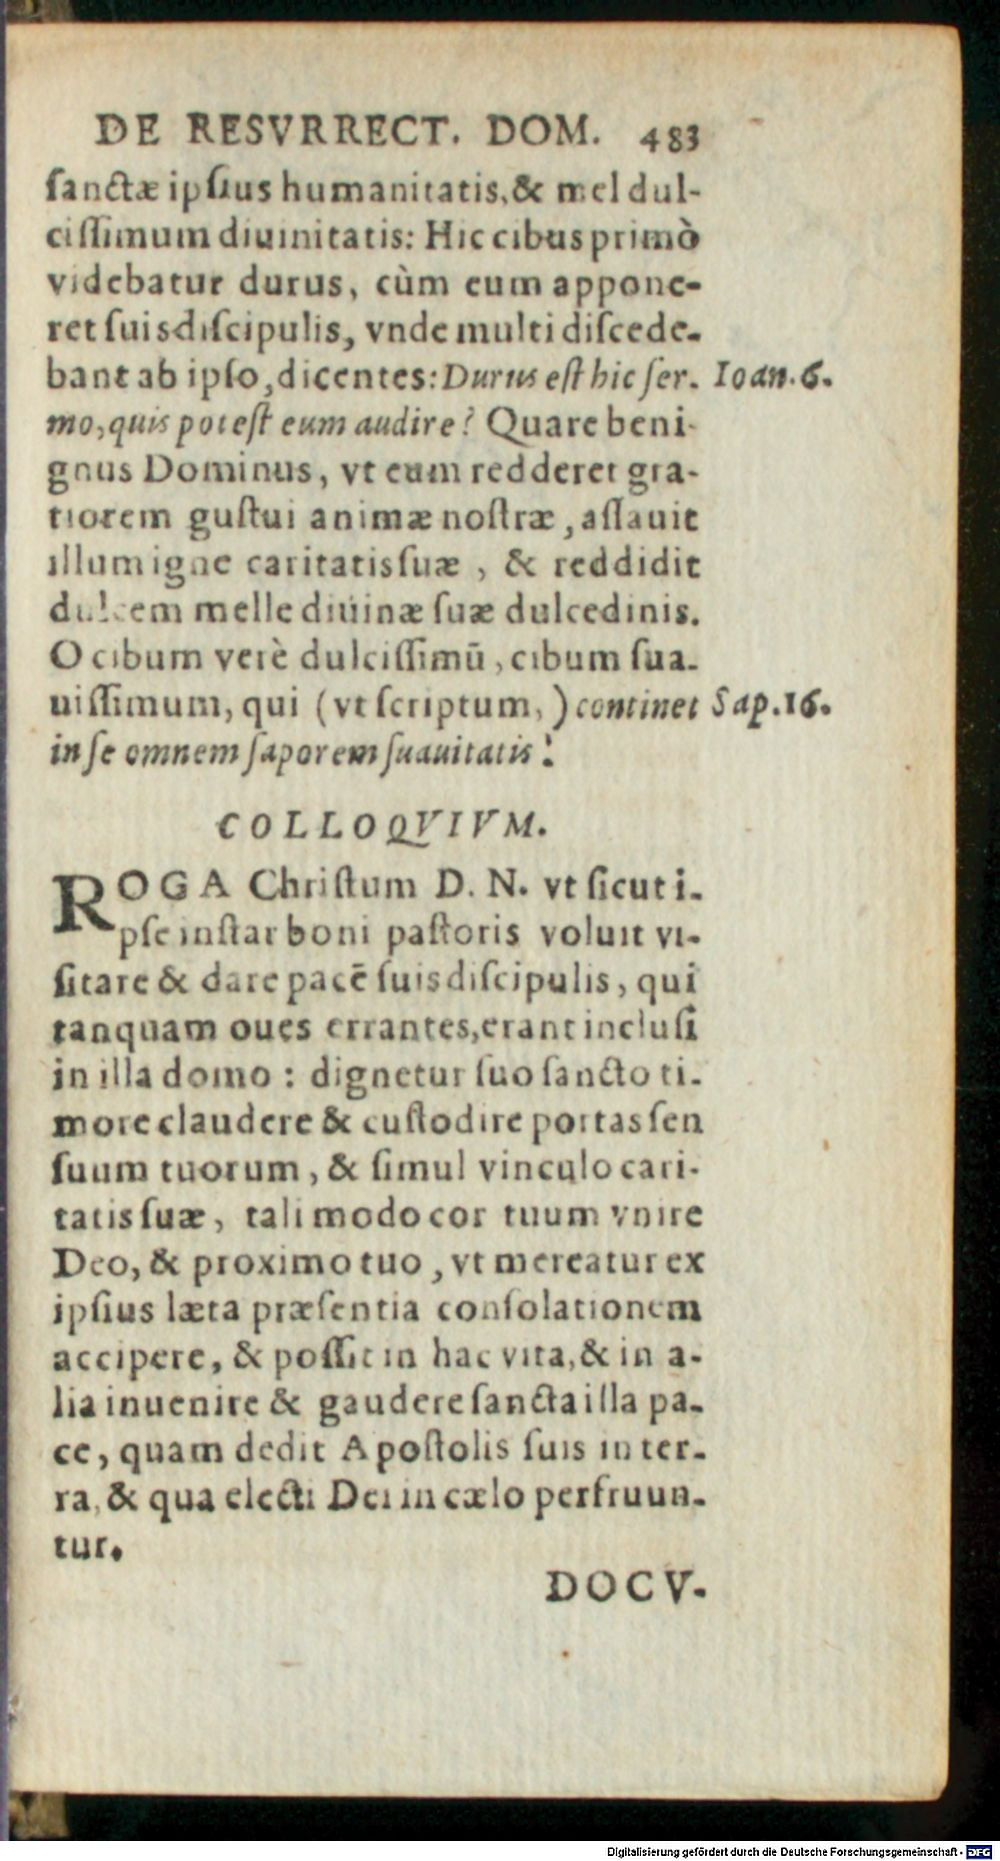 DE RESVRRECT. DOM. 483
ſanctæ ipſius humanitatis, & mel dul-
ciſſimum diuinitatis: Hic cibus primò
videbatur durus, cùm eum appone-
ret ſuis diſcipulis, vnde multi diſcede-
bant ab ipſo, dicentes: Durus eſt hic ſer- Ioan. 6.
mo, quis poteſt eum audire? Quare beni-
gnus Dominus, vt eum redderet gra-
tiorem guſtui animæ noſtræ, aſſauit
illum igne caritatis ſuæ, & reddidit
dulcem melle diuinæ ſuæ dulcedinis.
O cibum verè dulciſſimū, cibum ſua-
uiſſimum, qui (vt ſcriptum,) continet Sap. 16.
in ſe omnem ſaporem ſuauitatis!
COLLOQVIVM.
ROGA Chriſtum D. N. vt ſicut i-
pſe inſtar boni paſtoris voluit vi-
ſitare & dare pacē ſuis diſcipulis, qui
tanquam oues errantes, erant incluſi
in illa domo: dignetur ſuo ſancto ti-
more claudere & cuſtodire portas ſen
ſuum tuorum, & ſimul vinculo cari-
tatis ſuæ, tali modo cor tuum vnire
Deo, & proximo tuo, vt mereatur ex
ipſius læta præſentia conſolationem
accipere, & poſſit in hac vita, & in a-
lia inuenire & gaudere ſancta illa pa-
ce, quam dedit Apoſtolis ſuis in ter-
ra, & qua electi Dei in cælo perfruun-
tur.
DOCV-
Digitalisierung gefördert durch die Deutsche Forschungsgemeinschaft - DFG